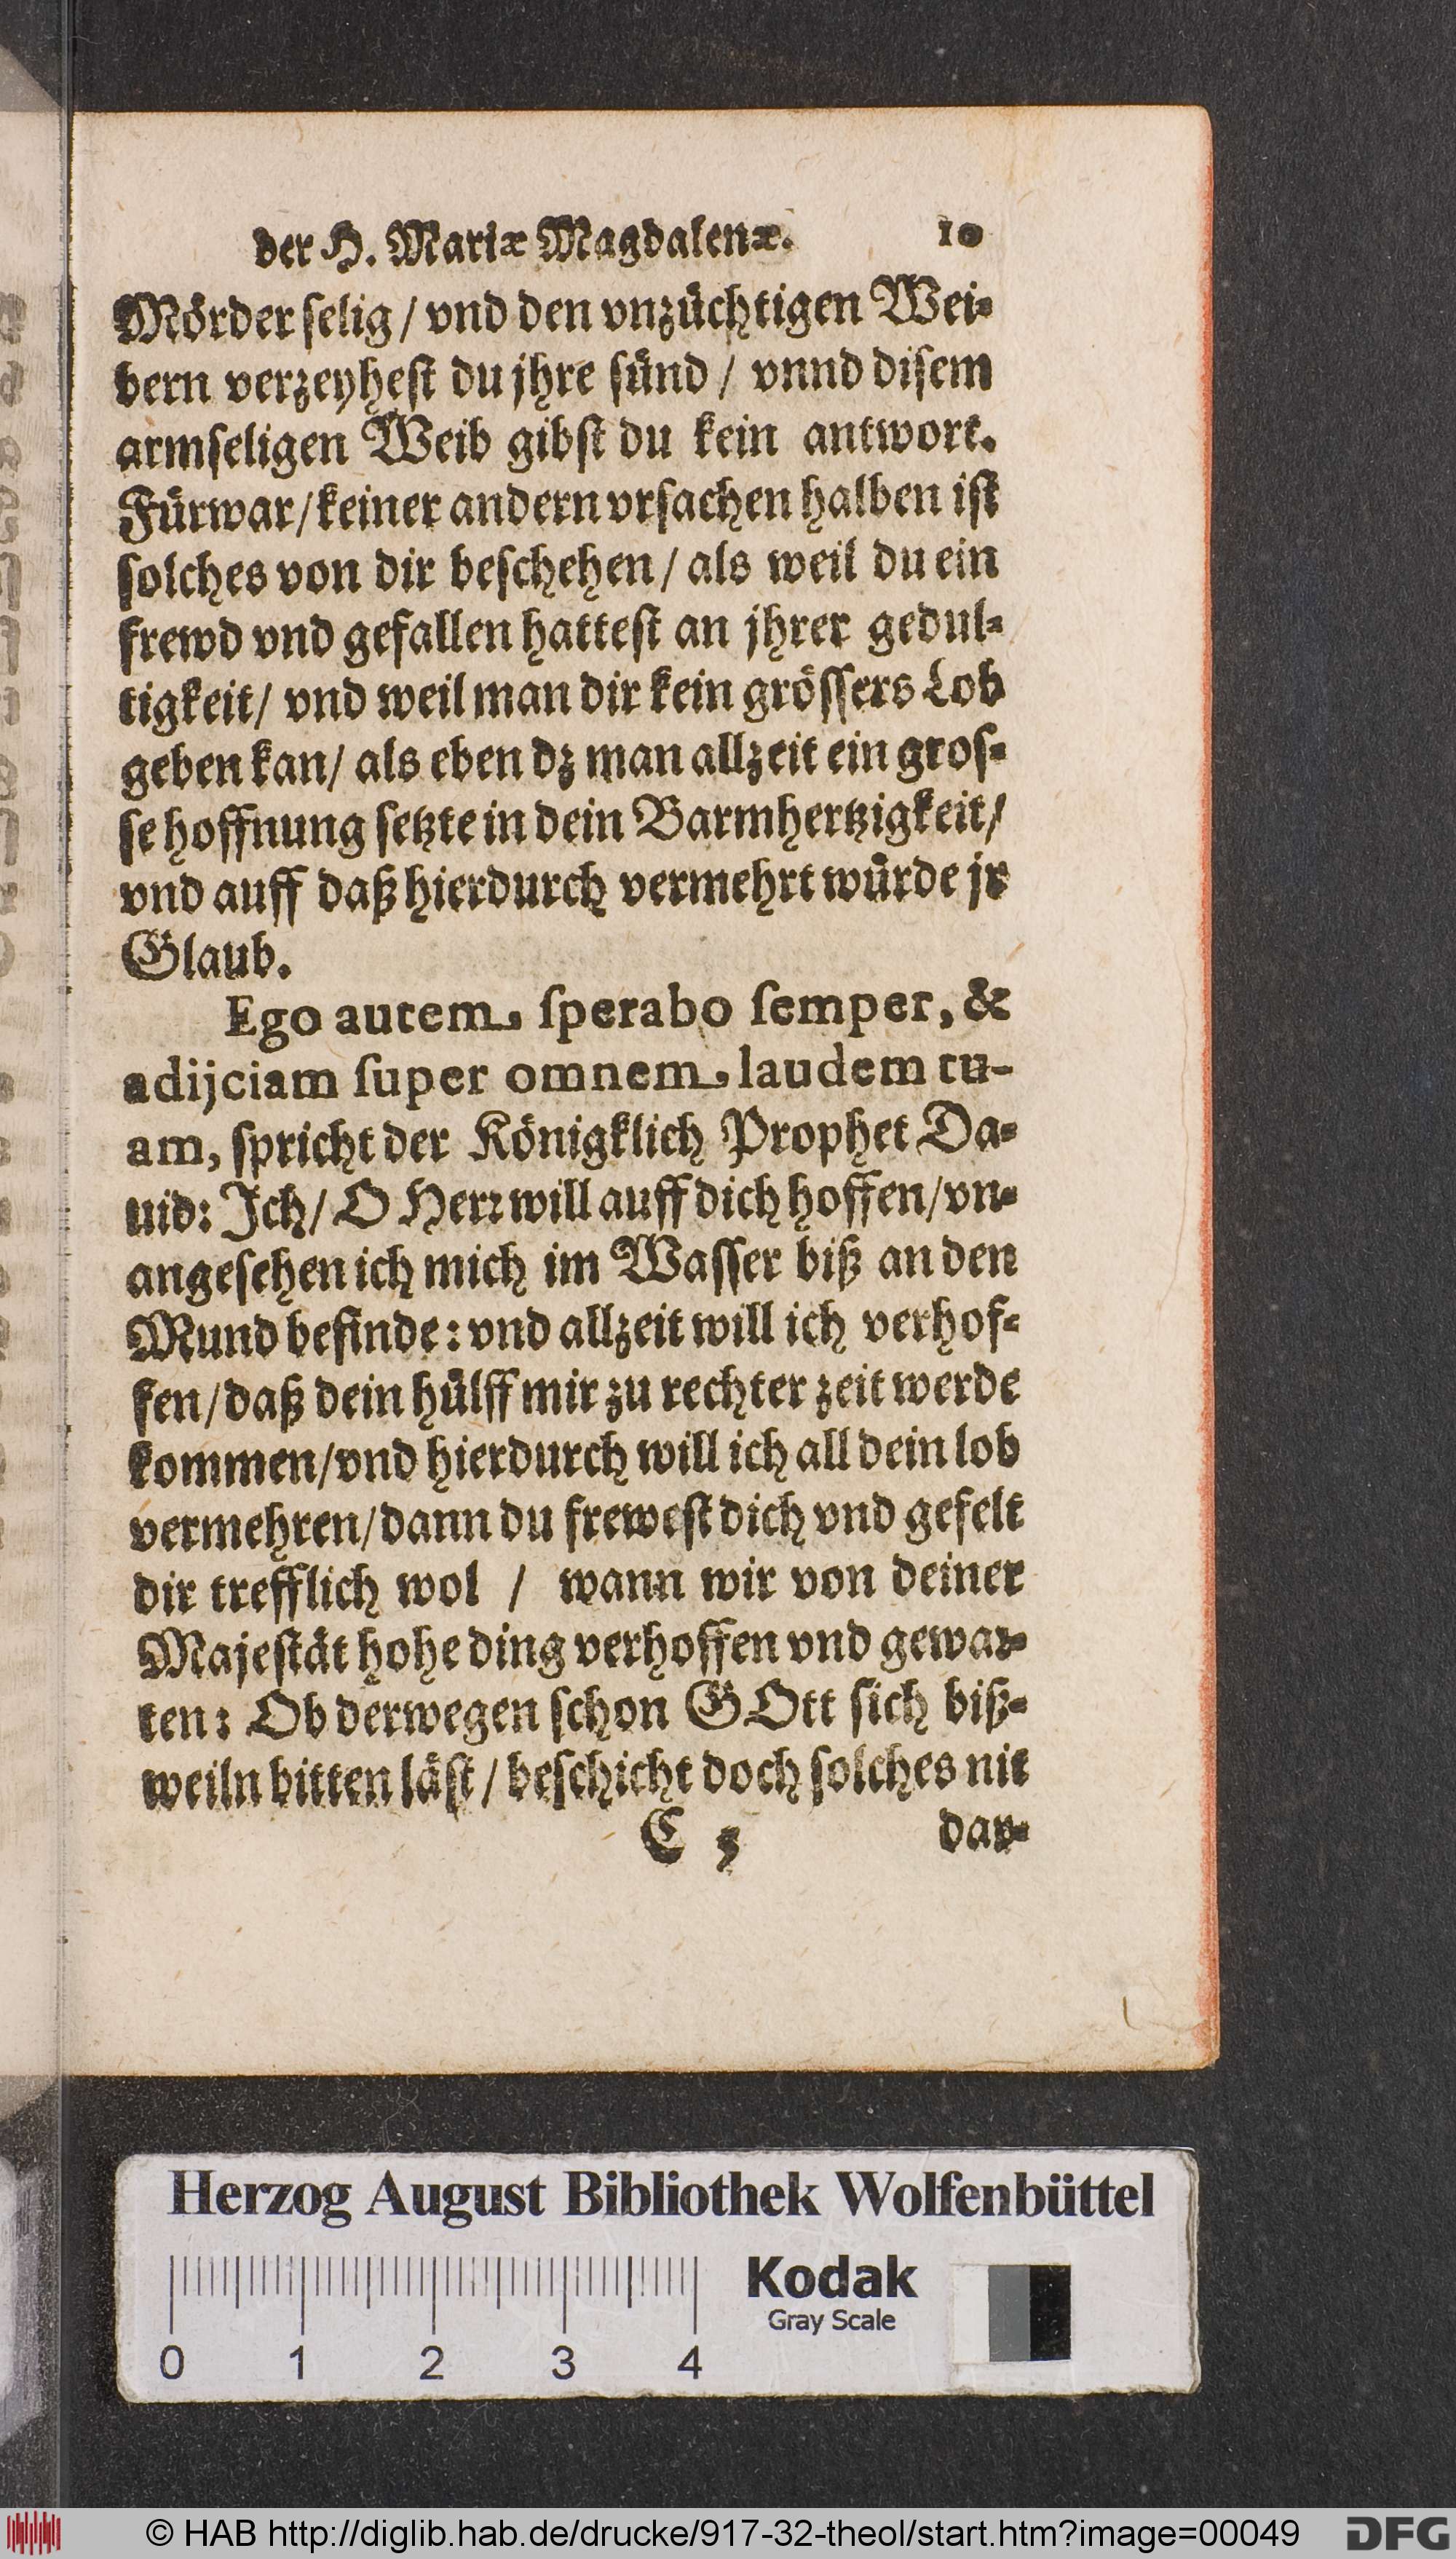 der H. Mariæ Magdalenæ. 10
Mörder ſelig / vnd den vnzüchtigen Wei-
bern verzeyheſt du jhre ſünd / vnnd diſem
armſeligen Weib gibſt du kein antwort.
Fürwar / keiner andern vrſachen halben iſt
ſolches von dir beſchehen / als weil du ein
frewd vnd gefallen hatteſt an jhrer gedul-
tigkeit / vnd weil man dir kein gröſſers Lob
geben kan / als eben dz man allzeit ein groſ-
ſe hoffnung ſetzte in dein Barmhertzigkeit /
vnd auff daß hierdurch vermehrt würde jr
Glaub.
Ego autem, ſperabo ſemper, &
adijciam ſuper omnem, laudem tu-
am, ſpricht der Königklich Prophet Da-
uid: Ich / O Herr will auff dich hoffen / vn-
angeſehen ich mich im Waſſer biß an den
Mund befinde: vnd allzeit will ich verhof-
fen / daß dein hülff mir zu rechter zeit werde
kommen / vnd hierdurch will ich all dein lob
vermehren / dann du freweſt dich vnd gefelt
dir trefflich wol / wann wir von deiner
Majeſtät hohe ding verhoffen vnd gewar-
ten: Ob derwegen ſchon GOtt ſich biß-
weiln bitten läſt / beſchicht doch ſolches nit
C 3 dar-
Herzog August Bibliothek Wolfenbüttel
Kodak
Gray Scale
0 1 2 3 4
© HAB http://diglib.hab.de/drucke/917-32-theol/start.htm?image=00049 DFG